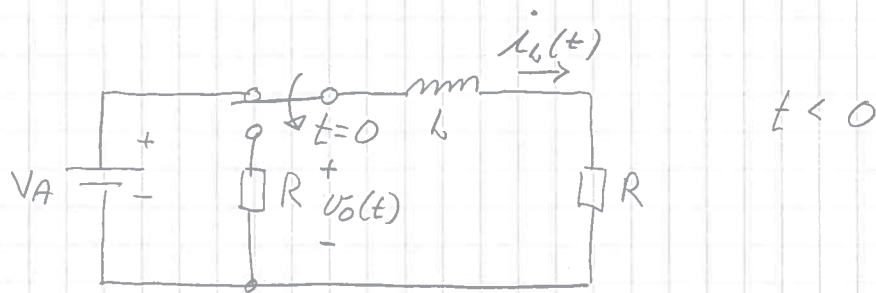 i_L(t)
t < 0
+
t=0
L
VA
-
R
+
v_o(t)
-
R